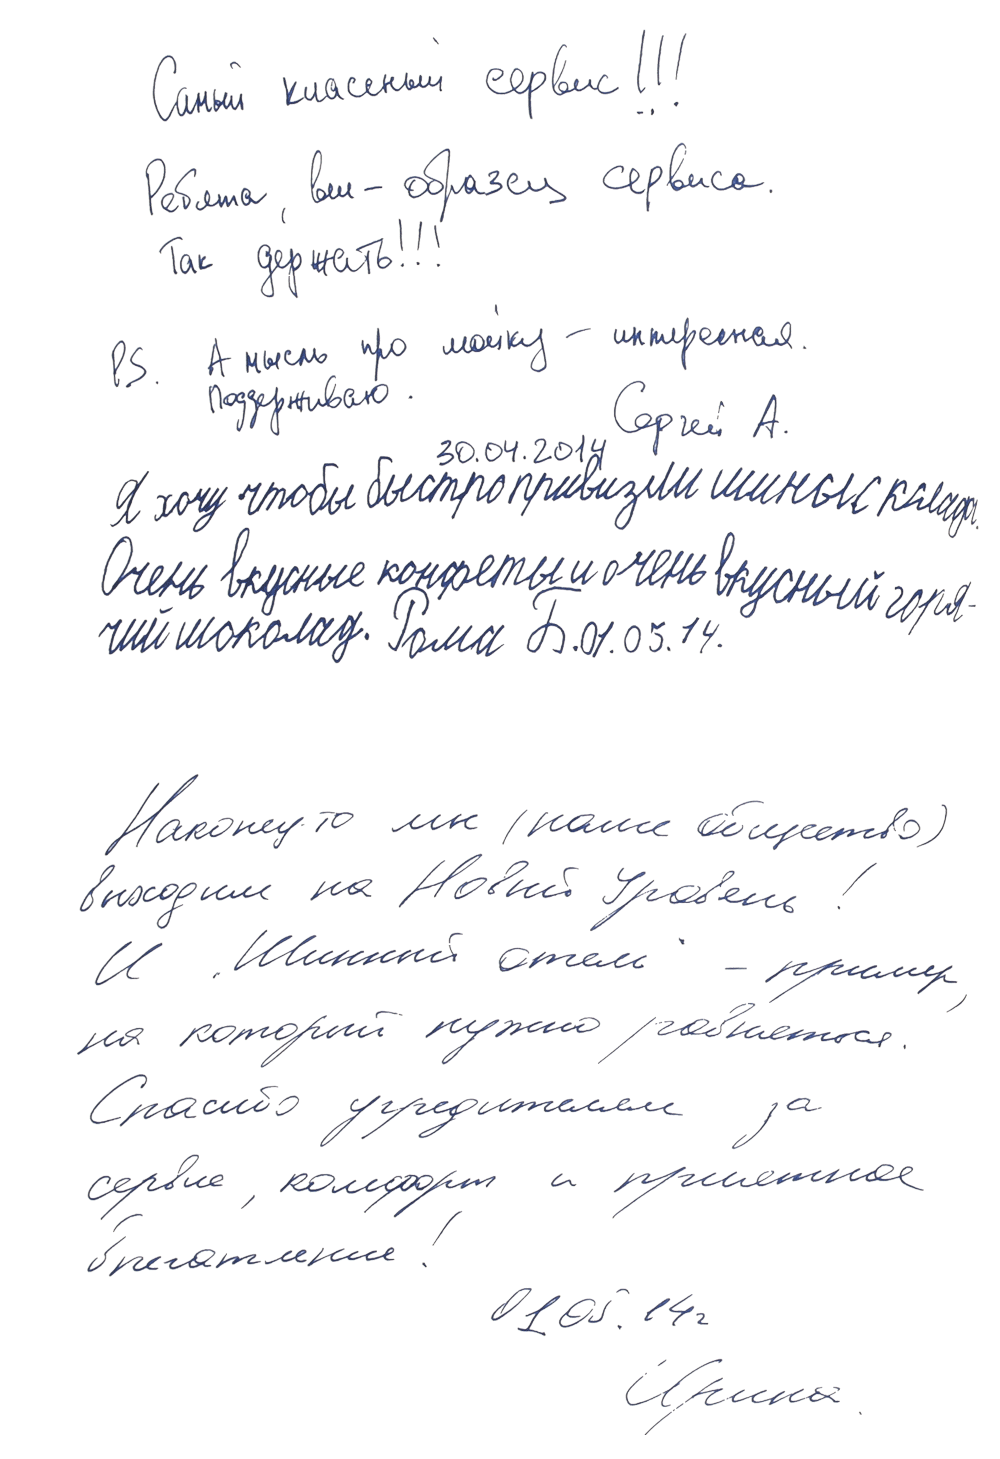 Самый классный сервис!!!
Ребята, вы - образец сервиса.
Так держать!!!
PS. А мысль про мойку - интересная.
Поддерживаю.
Сергей А.
30.04.2014
Я хочу чтобы быстро привизли шины с склада.
Очень вкусные конфеты и очень вкусный горя-
чий шоколад. Рома Б. 01.05.14.
Наконец-то мы (наше общество)
выходим на Новый Уровень!
И "Шинный отель" - пример,
на который нужно равняться.
Спасибо учредителям за
сервис, комфорт и приятное
впечатление!
01.05.14г
Ирина.